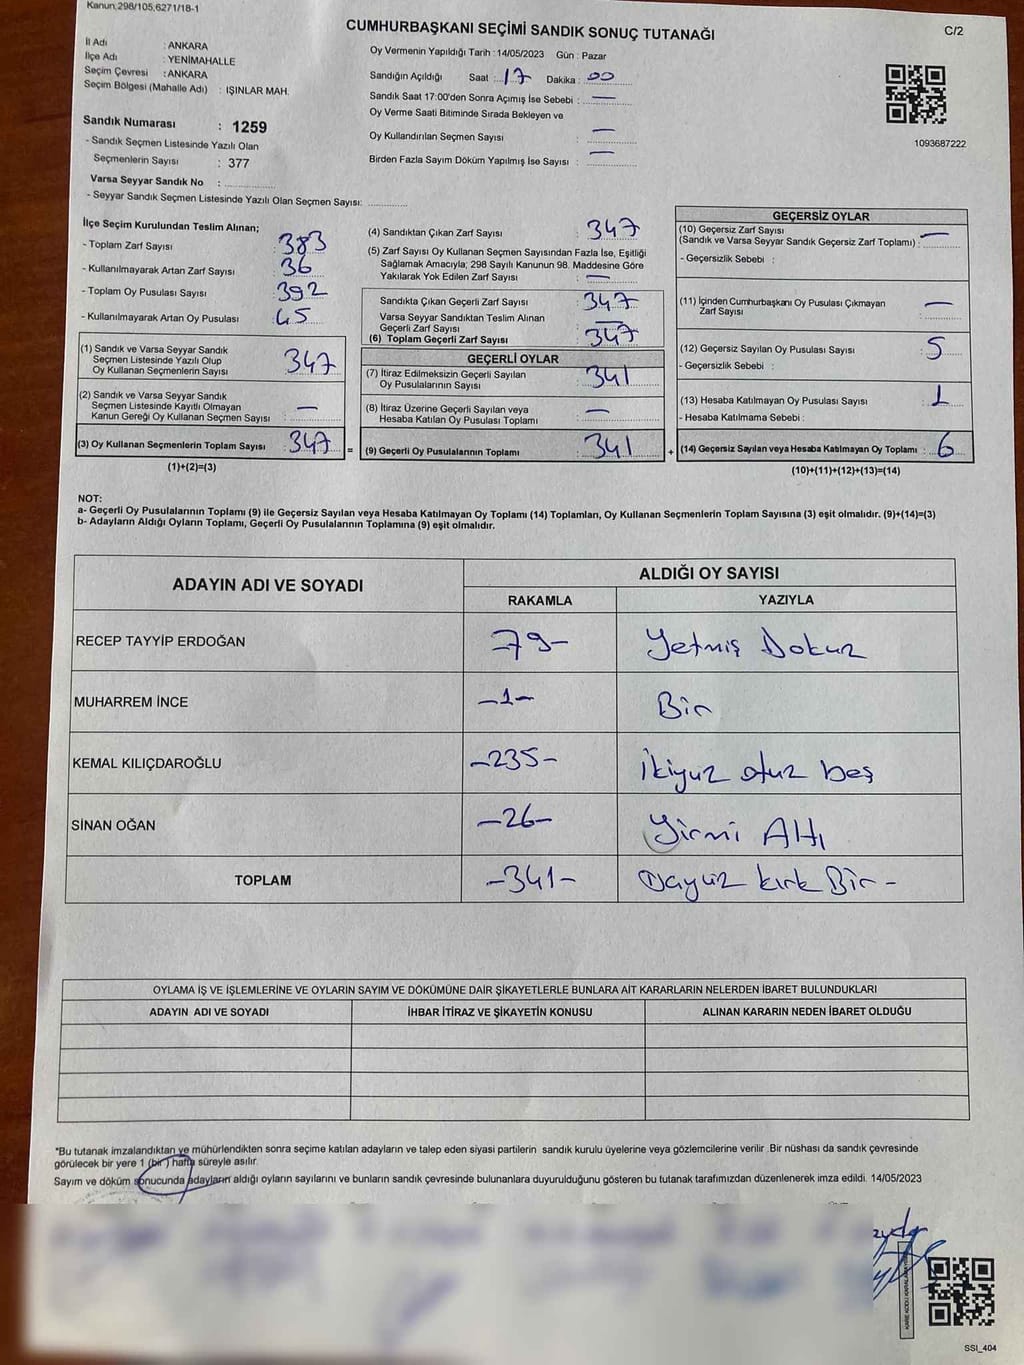 Kanun,298/105,6271/18-1
CUMHURBAŞKANI SEÇİMİ SANDIK SONUÇ TUTANAĞI
C/2
İl Adı : ANKARA
İlçe Adı : YENİMAHALLE
Seçim Çevresi : ANKARA
Seçim Bölgesi (Mahalle Adı) : IŞINLAR MAH.
Oy Vermenin Yapıldığı Tarih : 14/05/2023 Gün : Pazar
Sandığın Açıldığı Saat : 17 Dakika : 00
Sandık Saat 17:00'den Sonra Açımış İse Sebebi : —
Oy Verme Saati Bitiminde Sırada Bekleyen ve
Oy Kullandırılan Seçmen Sayısı : —
Birden Fazla Sayım Döküm Yapılmış İse Sayısı : —
1093687222
Sandık Numarası : 1259
- Sandık Seçmen Listesinde Yazılı Olan
Seçmenlerin Sayısı : 377
Varsa Seyyar Sandık No :
- Seyyar Sandık Seçmen Listesinde Yazılı Olan Seçmen Sayısı:
İlçe Seçim Kurulundan Teslim Alınan;
- Toplam Zarf Sayısı : 383
- Kullanılmayarak Artan Zarf Sayısı : 36
- Toplam Oy Pusulası Sayısı : 392
- Kullanılmayarak Artan Oy Pusulası : 45
(1) Sandık ve Varsa Seyyar Sandık
Seçmen Listesinde Yazılı Olup
Oy Kullanan Seçmenlerin Sayısı : 347
(2) Sandık ve Varsa Seyyar Sandık
Seçmen Listesinde Kayıtlı Olmayan
Kanun Gereği Oy Kullanan Seçmen Sayısı : —
(3) Oy Kullanan Seçmenlerin Toplam Sayısı : 347
(1)+(2)=(3)
(4) Sandıktan Çıkan Zarf Sayısı : 347
(5) Zarf Sayısı Oy Kullanan Seçmen Sayısından Fazla İse, Eşitliği
Sağlamak Amacıyla; 298 Sayılı Kanunun 98. Maddesine Göre
Yakılarak Yok Edilen Zarf Sayısı : —
Sandıkta Çıkan Geçerli Zarf Sayısı : 347
Varsa Seyyar Sandıktan Teslim Alınan
Geçerli Zarf Sayısı : —
(6) Toplam Geçerli Zarf Sayısı : 347
GEÇERLİ OYLAR
(7) İtiraz Edilmeksizin Geçerli Sayılan
Oy Pusulalarının Sayısı : 341
(8) İtiraz Üzerine Geçerli Sayılan veya
Hesaba Katılan Oy Pusulası Toplamı : —
= (9) Geçerli Oy Pusulalarının Toplamı : 341
GEÇERSİZ OYLAR
(10) Geçersiz Zarf Sayısı
(Sandık ve Varsa Seyyar Sandık Geçersiz Zarf Toplamı) : —
- Geçersizlik Sebebi :
(11) İçinden Cumhurbaşkanı Oy Pusulası Çıkmayan
Zarf Sayısı : —
(12) Geçersiz Sayılan Oy Pusulası Sayısı : 5
- Geçersizlik Sebebi :
(13) Hesaba Katılmayan Oy Pusulası Sayısı : 1
- Hesaba Katılmama Sebebi :
+ (14) Geçersiz Sayılan veya Hesaba Katılmayan Oy Toplamı : 6
(10)+(11)+(12)+(13)=(14)
NOT:
a- Geçerli Oy Pusulalarının Toplamı (9) ile Geçersiz Sayılan veya Hesaba Katılmayan Oy Toplamı (14) Toplamları, Oy Kullanan Seçmenlerin Toplam Sayısına (3) eşit olmalıdır. (9)+(14)=(3)
b- Adayların Aldığı Oyların Toplamı, Geçerli Oy Pusulalarının Toplamına (9) eşit olmalıdır.
ADAYIN ADI VE SOYADI
ALDIĞI OY SAYISI
RAKAMLA YAZIYLA
RECEP TAYYİP ERDOĞAN -79- Yetmiş Dokuz
MUHARREM İNCE -1- Bir
KEMAL KILIÇDAROĞLU -235- İkiyuz otuz beş
SİNAN OĞAN -26- Yirmi Altı
TOPLAM -341- kırk Bir -
OYLAMA İŞ VE İŞLEMLERİNE VE OYLARIN SAYIM VE DÖKÜMÜNE DAİR ŞİKAYETLERLE BUNLARA AİT KARARLARIN NELERDEN İBARET BULUNDUKLARI
ADAYIN ADI VE SOYADI İHBAR İTİRAZ VE ŞİKAYETİN KONUSU ALINAN KARARIN NEDEN İBARET OLDUĞU
*Bu tutanak imzalandıktan ve mühürlendikten sonra seçime katılan adayların ve talep eden siyasi partilerin sandık kurulu üyelerine veya gözlemcilerine verilir. Bir nüshası da sandık çevresinde
görülecek bir yere 1 (bir) hafta süreyle asılır.
Sayım ve döküm sonucunda adayların aldığı oyların sayılarını ve bunların sandık çevresinde bulunanlara duyurulduğunu gösteren bu tutanak tarafımızdan düzenlenerek imza edildi. 14/05/2023
SSI_404